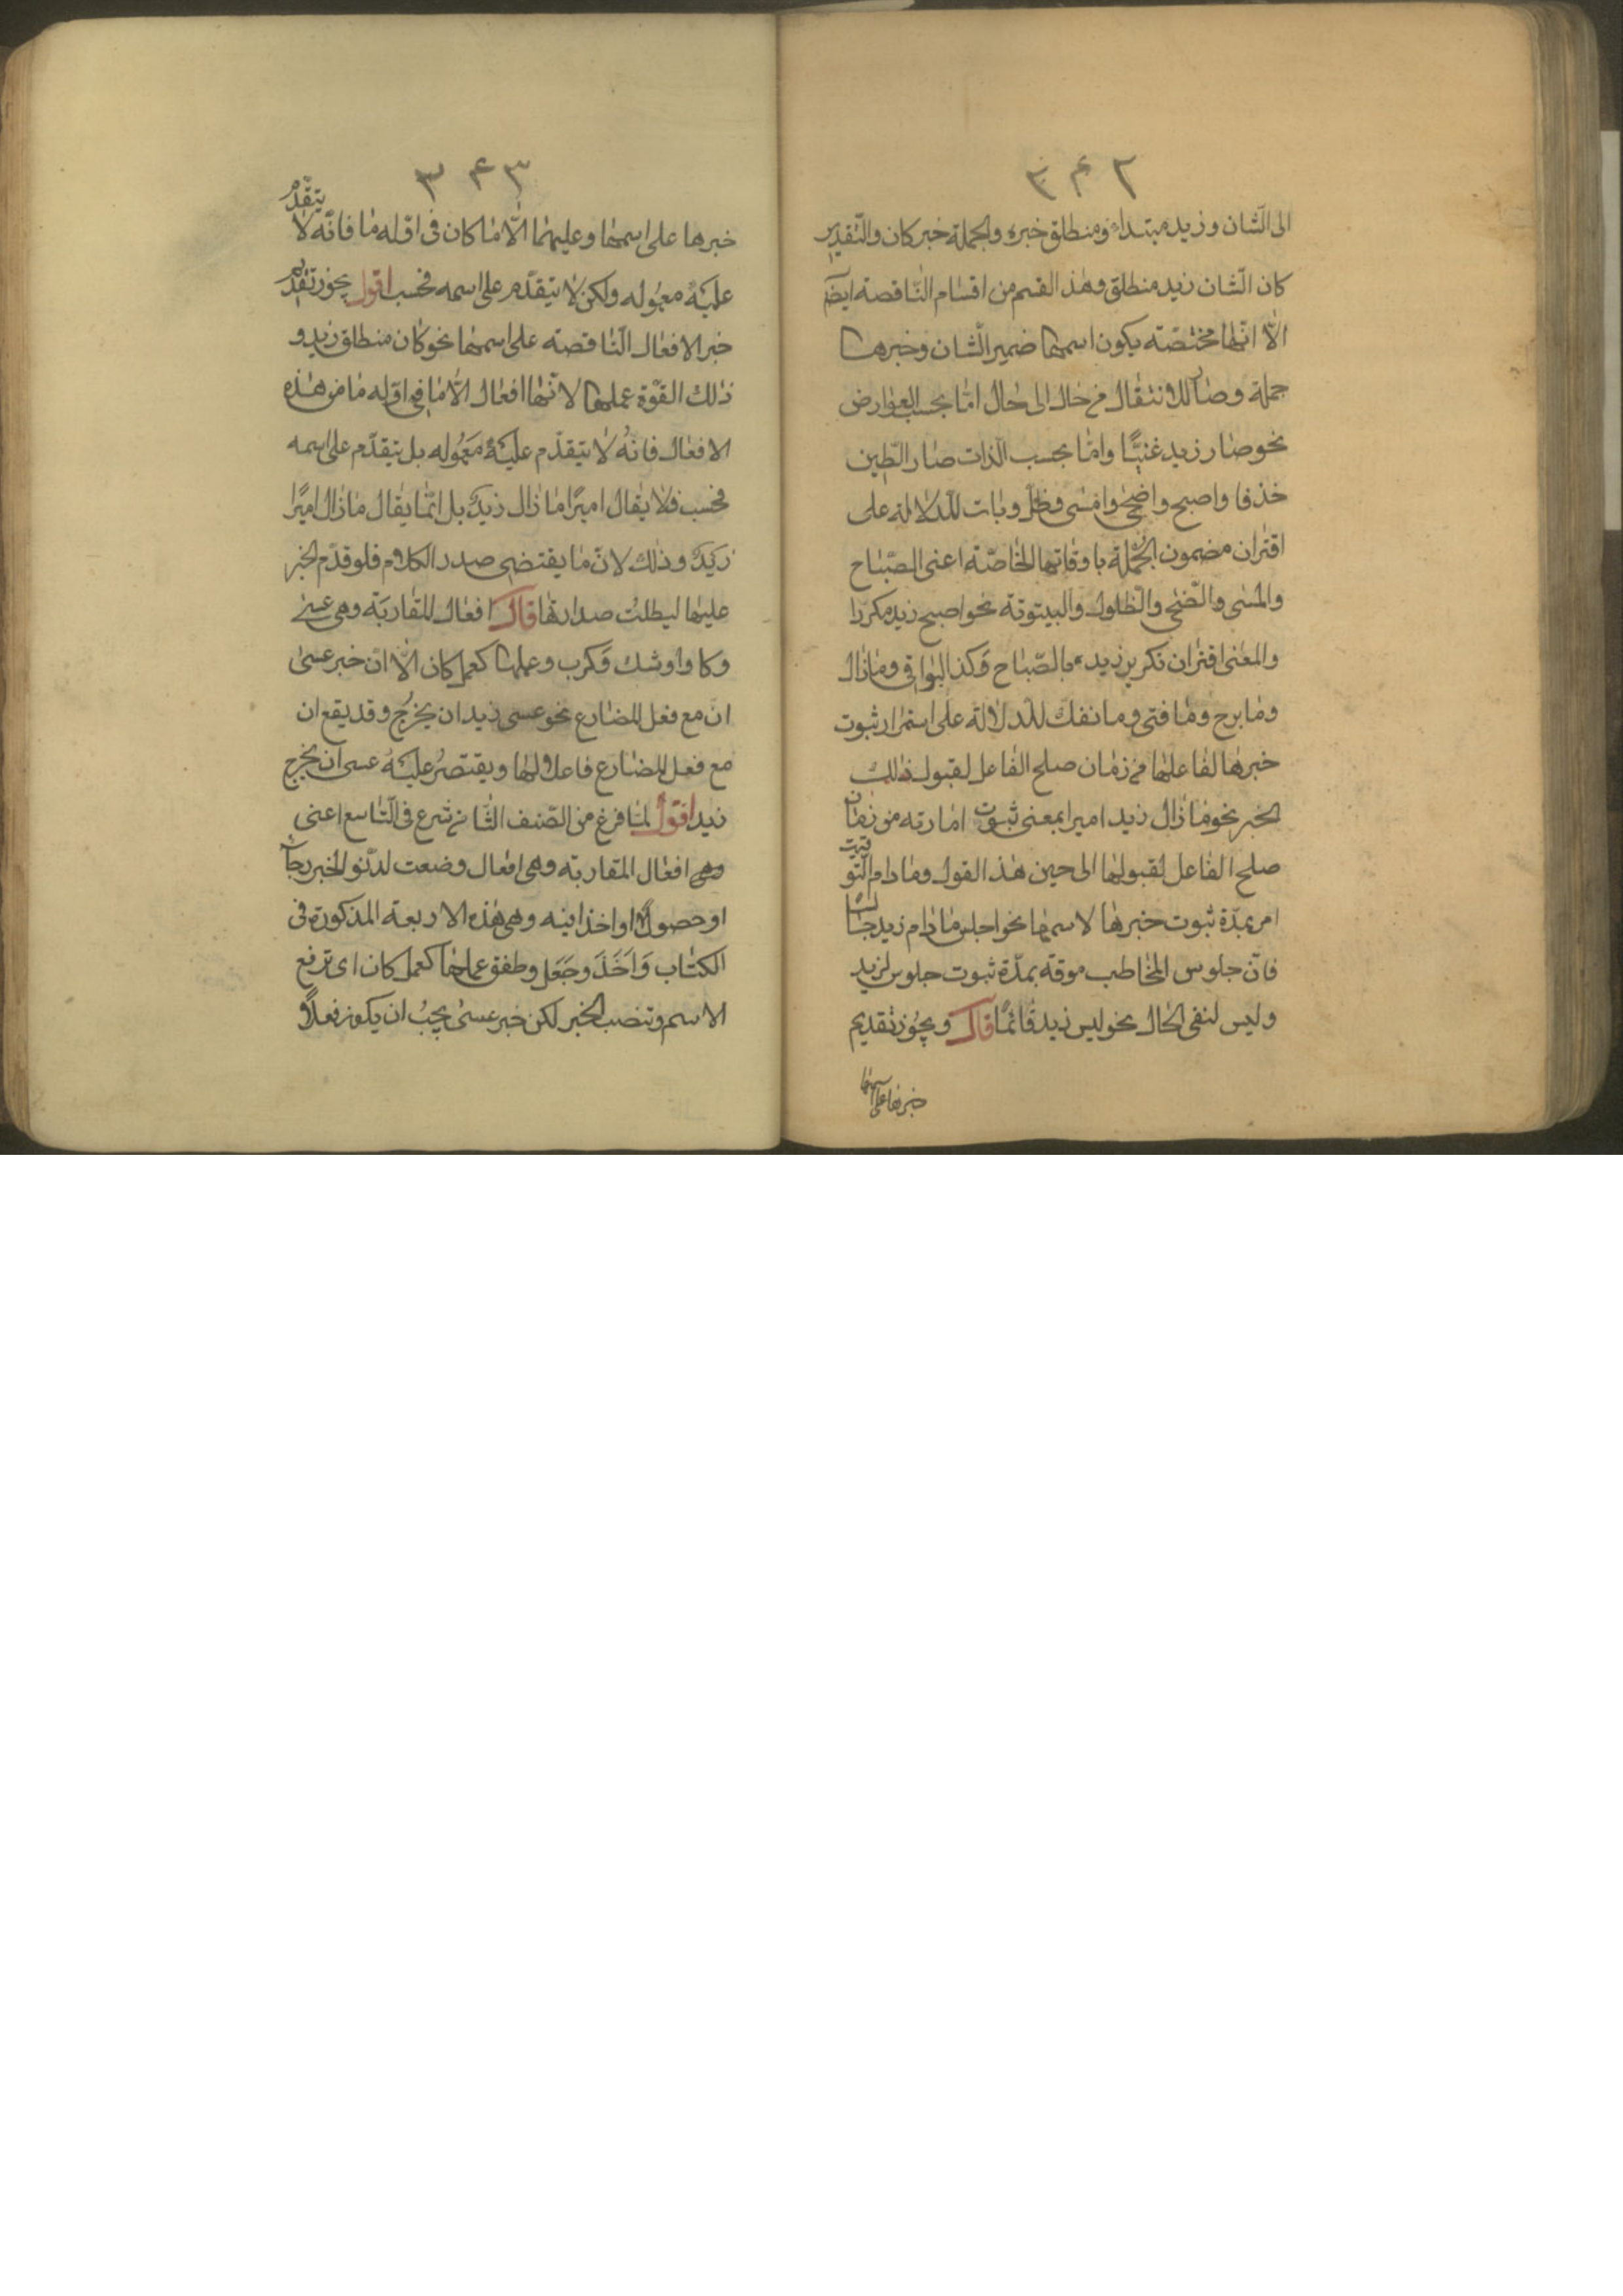 ٣۴٢
الى الشان وزيد مبتداء ومنطلق خبره والجملة خبر كان والتقدير
كان الشان زيد منطلق وهذ القسم من اقسام الناقصة ايضا
الا انها مختصة يكون اسمها ضمير الشان وخبرها
جملة وصار للانتقال من حال الى حال اما بحسب العوارض
نحو صار زيد غنيا واما بحسب الذات صار الطين
خذفا واصبح واضحى وامسى وظل وبات للدلالة على
اقتران مضمون الجملة باوقاتها الخاصة اعنى الصباح
والمسى والضحى والظلول والبيتوتة نحو اصبح زيد مكررا
والمعنى اقتران تكرير زيد بالصباح وكذ البواقى ومازال
ومابرح ومافتى ومانفك للدلالة على استمرار ثبوت
خبرها لفاعلها من زمان صلح الفاعل لقبول ذلك
الخبر نحو مازال زيد اميرا بمعنى ثبوت امارته من زمان
صلح الفاعل لقبولها الى حين هذ القول ومادام التوقيت
امر بمدة ثبوت خبرها لاسمها نحو اجلس مادام زيد جالسا
فان جلوس المخاطب موقة بمدة ثبوت جلوس لزيد
وليس لنفى الحال نحو ليس زيد قائما قال ويجوز تقديم
خبرها على اسمها
٣۴٣
خبرها على اسمها وعليهما الا ما كان فى اوله ما فانه لا يتقدم
عليه معموله ولكن لا يتقدم على اسمه فحسب اقول يجوز تقديم
خبر الافعال الناقصة على اسمها نحو كان منطلق زيد و
ذلك القوة عملها لانها افعال الا ما فى اوله ما من هذه
الافعال فانه لا يتقدم عليه معموله بل يتقدم على اسمه
فحسب فلا يقال اميرا مازال زيد بل انما يقال مازال اميرا
زيد وذلك لان ما يقتضى صدر الكلام فلو قدم الخبر
عليها لبطلت صدارتها قال افعال المقاربة وهى عسى
وكا واوشك وكرب وعملها كعمل كان الا ان خبر عسى
ان مع فعل المضارع نحو عسى زيد ان يخرج وقد يقع ان
مع فعل المضارع فاعلا لها ويقتصر عليه عسى ان يخرج
زيد اقول لما فرغ من الصنف الثامن شرع فى التاسع اعنى
افعال المقاربة وهى افعال وضعت لدنو الخبر رجاء
او حصولا او اخذا فيه وهى هذه الاربعة المذكورة فى
الكتاب واخذ وجعل وطفق عملها كعمل كان اى ترفع
الاسم وتنصب الخبر لكن خبر عسى يجب ان يكون فعلا